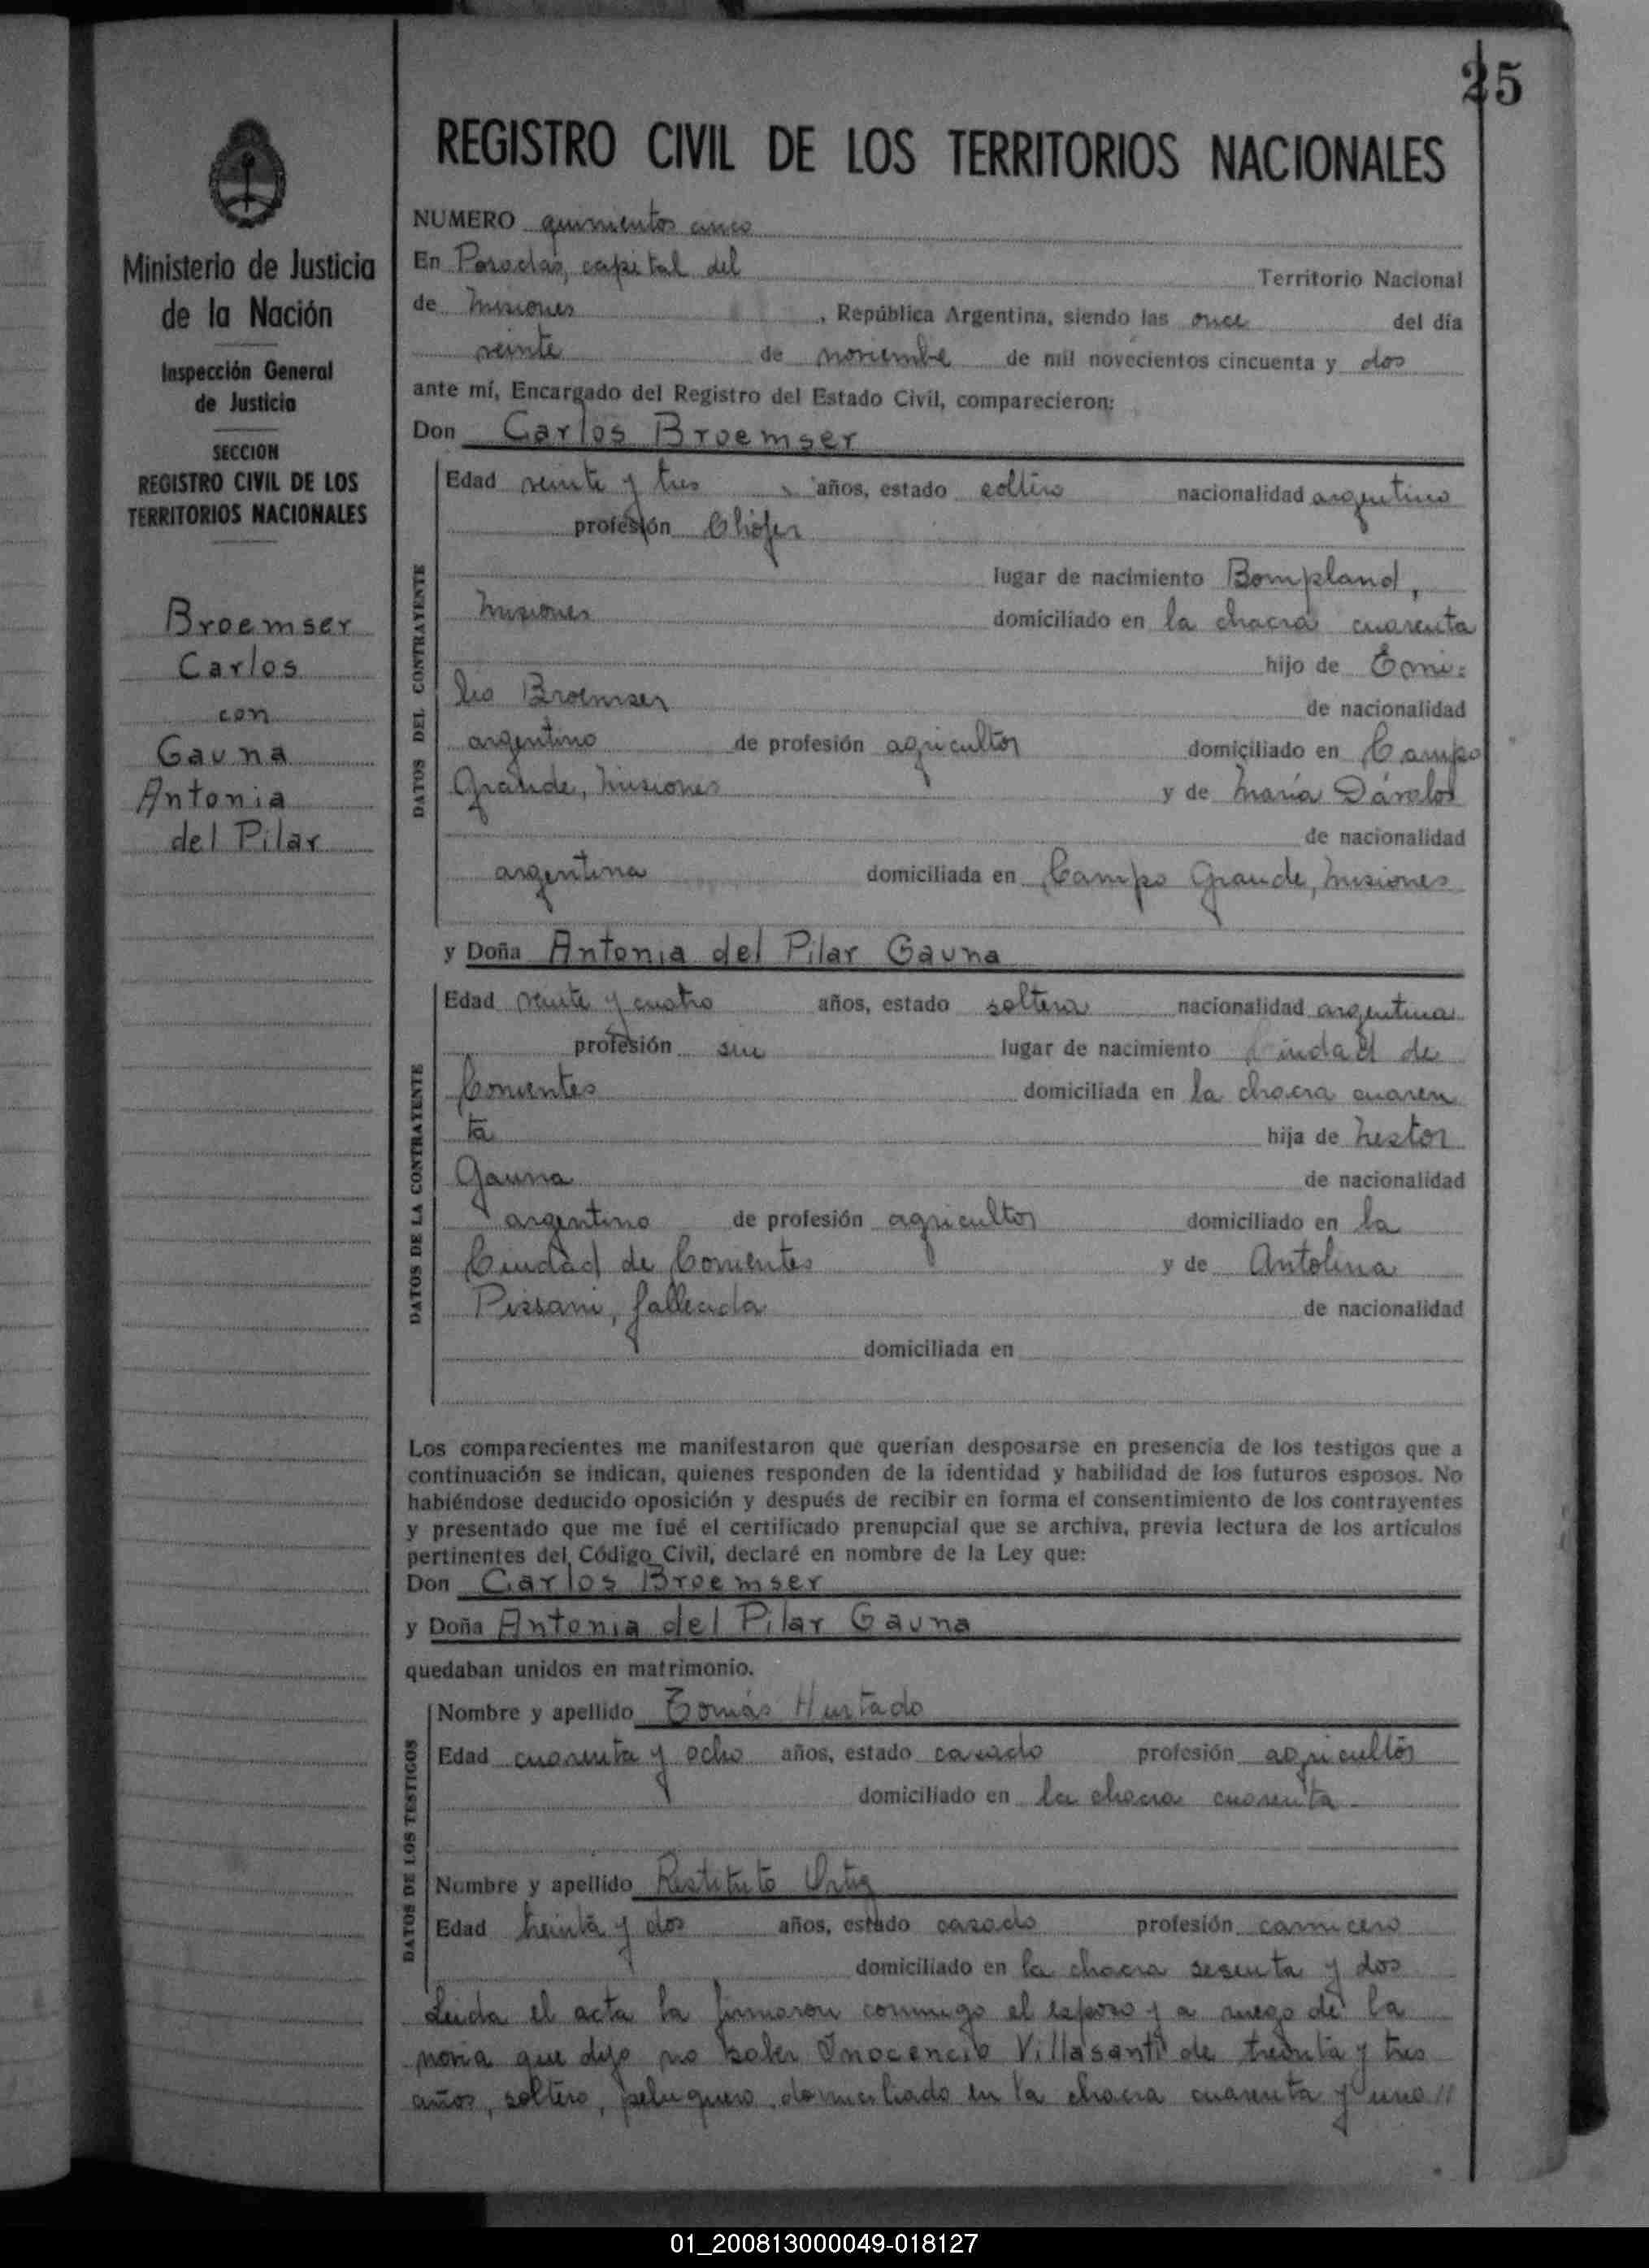 25
REGISTRO CIVIL DE LOS TERRITORIOS NACIONALES
Ministerio de Justicia
de la Nación
Inspección General
de Justicia
SECCION
REGISTRO CIVIL DE LOS
TERRITORIOS NACIONALES
Broemser
Carlos
con
Gauna
Antonia
del Pilar
NUMERO quinientos cinco
En Posadas, capital del Territorio Nacional
de Misiones, República Argentina, siendo las once del día
veinte de noviembre de mil novecientos cincuenta y dos
ante mí, Encargado del Registro del Estado Civil, comparecieron:
Don Carlos Broemser
DATOS DEL CONTRAYENTE
Edad veinte y tres años, estado soltero nacionalidad argentino
profesión Chófer
lugar de nacimiento Bompland,
Misiones domiciliado en la chacra cuarenta
hijo de Emi=
lio Broemser de nacionalidad
argentino de profesión agricultor domiciliado en Campo
Grande, Misiones y de María Dávalos
de nacionalidad
argentina domiciliada en Campo Grande, Misiones
y Doña Antonia del Pilar Gauna
DATOS DE LA CONTRAYENTE
Edad veinte y cuatro años, estado soltera nacionalidad argentina
profesión sin lugar de nacimiento Ciudad de
Corrientes domiciliada en la chacra cuaren
ta hija de Nestor
Gauna de nacionalidad
argentino de profesión agricultor domiciliado en la
Ciudad de Corrientes y de Antolina
Pissani, fallecida de nacionalidad
domiciliada en
Los comparecientes me manifestaron que querían desposarse en presencia de los testigos que a
continuación se indican, quienes responden de la identidad y habilidad de los futuros esposos. No
habiéndose deducido oposición y después de recibir en forma el consentimiento de los contrayentes
y presentado que me fué el certificado prenupcial que se archiva, previa lectura de los artículos
pertinentes del Código Civil, declaré en nombre de la Ley que:
Don Carlos Broemser
y Doña Antonia del Pilar Gauna
quedaban unidos en matrimonio.
DATOS DE LOS TESTIGOS
Nombre y apellido Tomás Hurtado
Edad cuarenta y ocho años, estado casado profesión agricultor
domiciliado en la chacra cuarenta
Nombre y apellido Restituto Ortiz
Edad treinta y dos años, estado casado profesión carnicero
domiciliado en la chacra sesenta y dos
Leida el acta la firmaron conmigo el esposo y a ruego de la
novia que dijo no saber Inocencio Villasanti de treinta y tres
años, soltero, peluquero, domiciliado en la chacra cuarenta y uno //
01_200813000049-018127